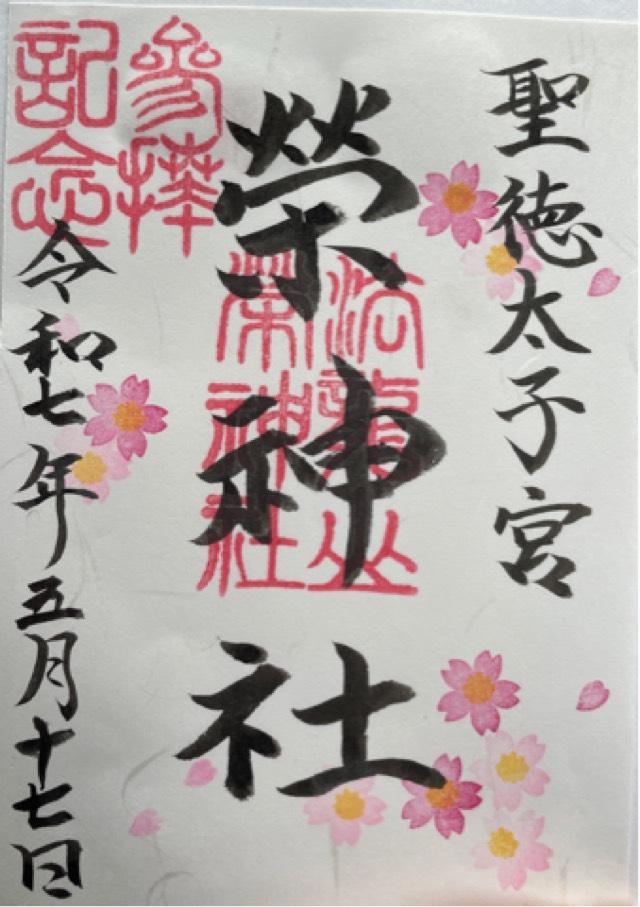 聖徳太子宮
榮神社
榮神社
參拝
記念
令和七年五月十七日